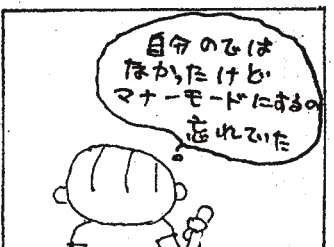 自分のでは
なかったけど
マナーモードにするの
忘れていた